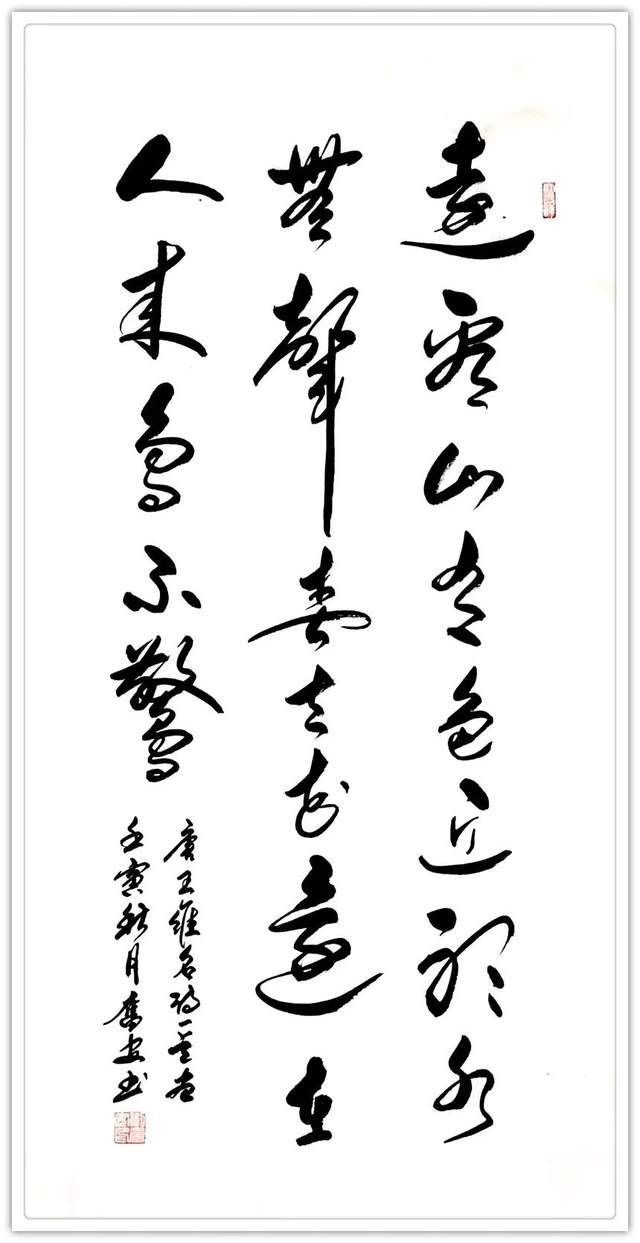 遠看山有色近聽水
無聲春去花還在
人來鳥不驚
唐王維名詩一首
壬寅秋月奮安书